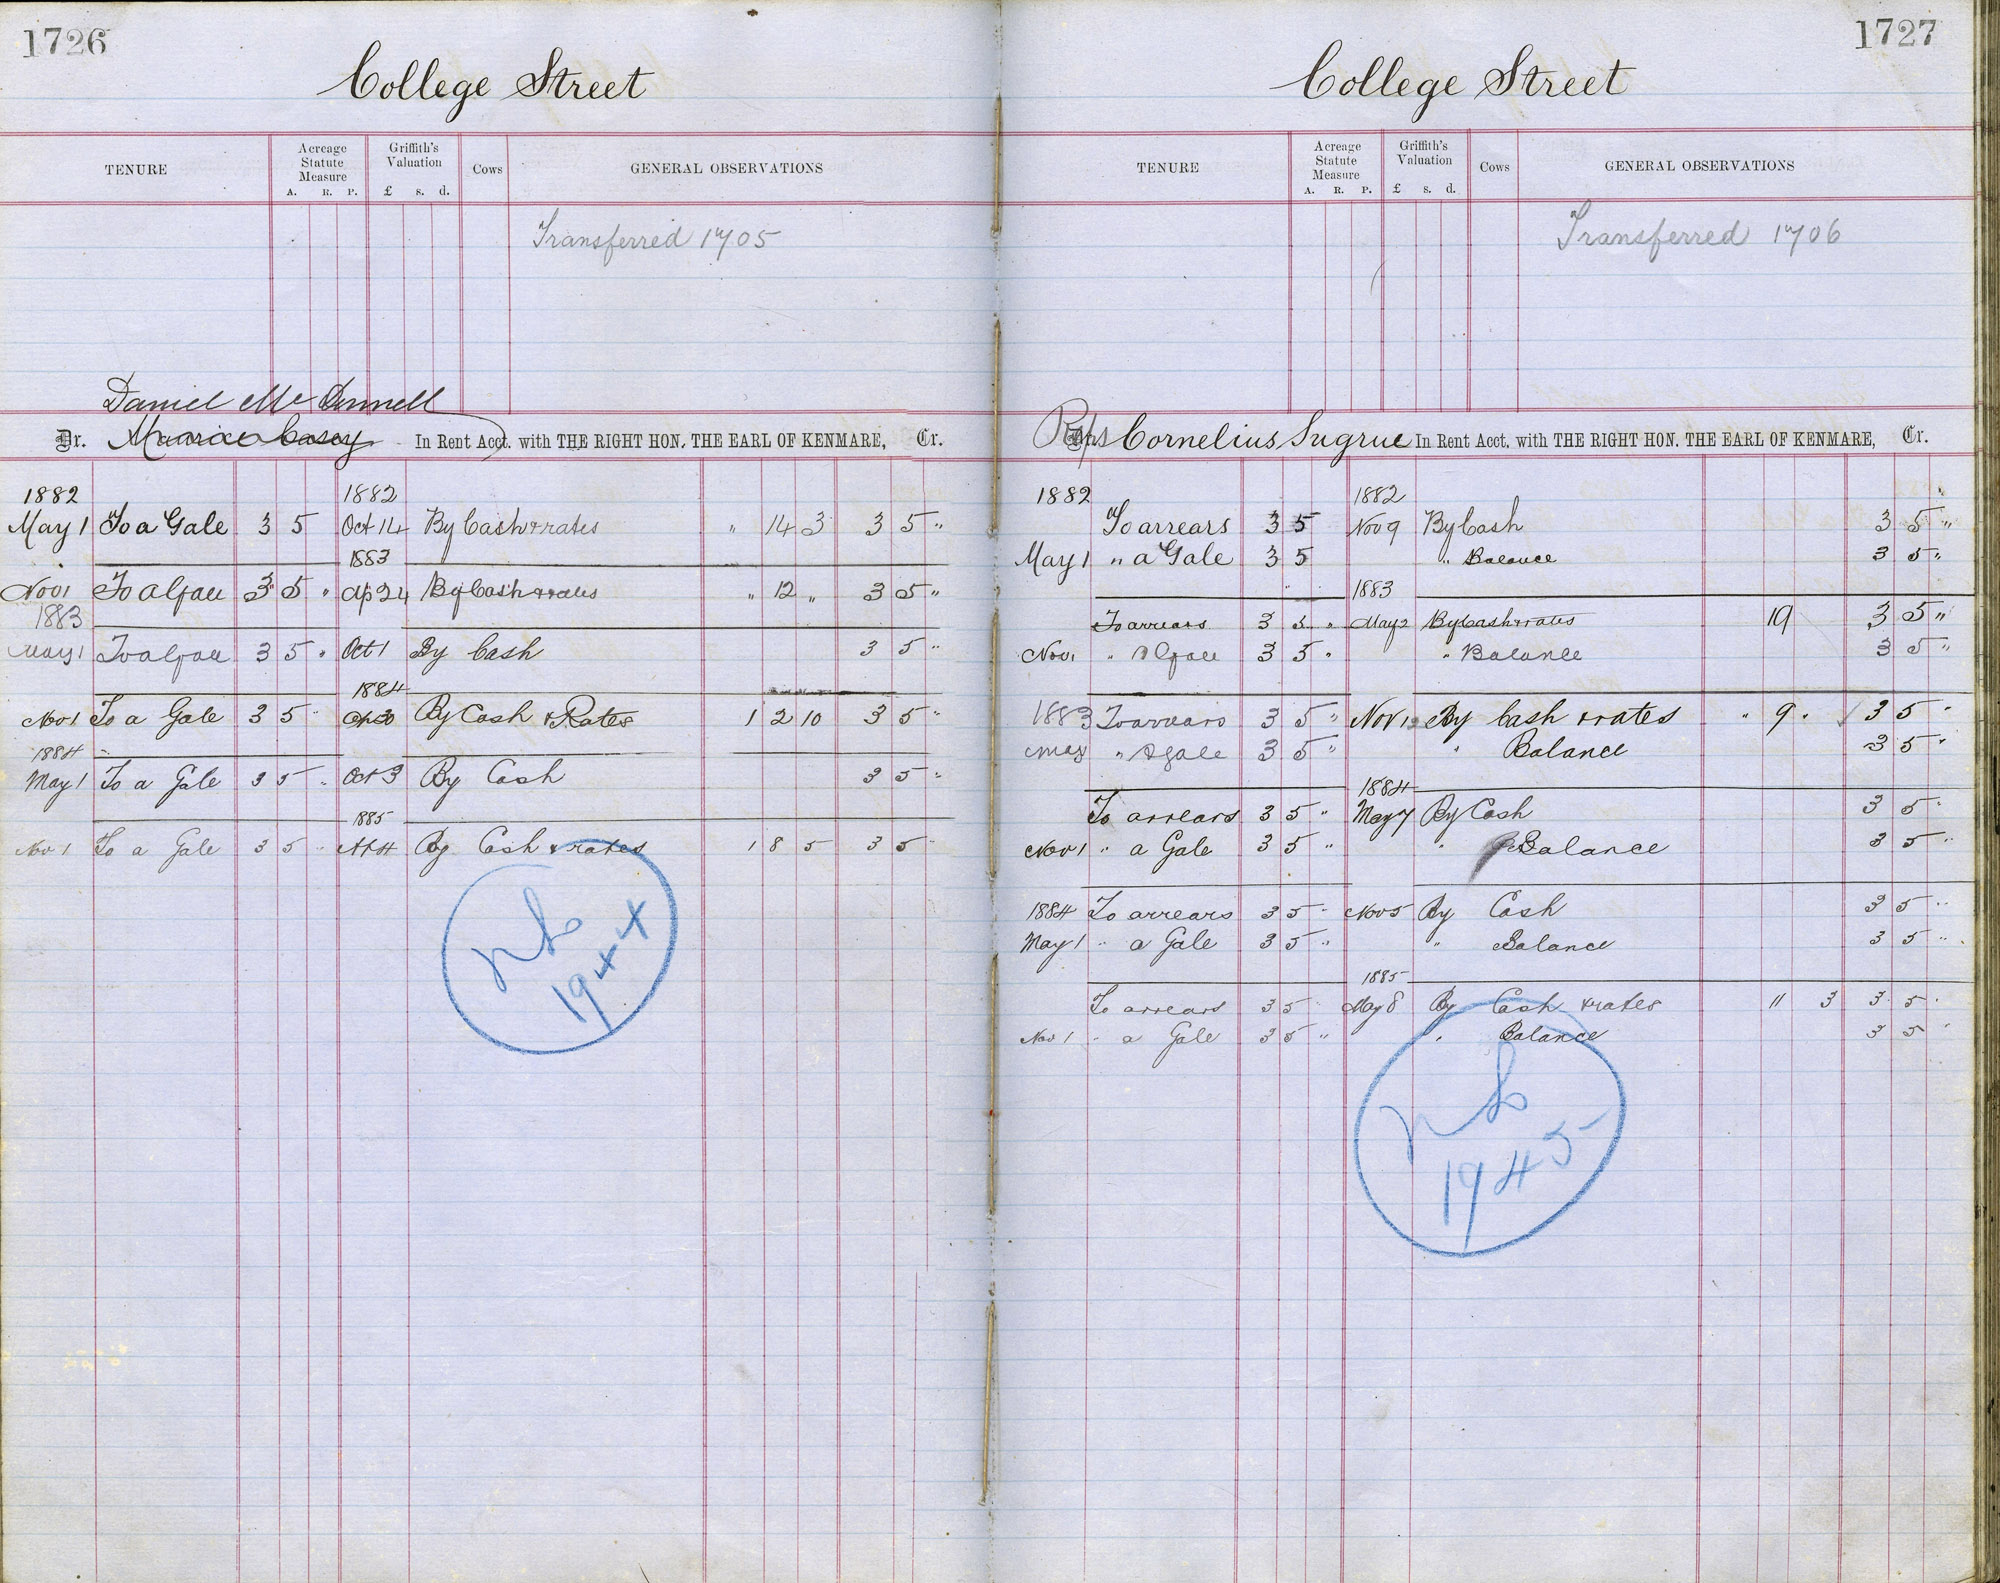 1726
College Street
TENURE Acreage Statute Measure A. R. P. Griffith's Valuation £ s. d. Cows GENERAL OBSERVATIONS
Transferred 1705
Daniel Mc Donnell
Dr. Maurice Casey In Rent Acct. with THE RIGHT HON. THE EARL OF KENMARE, Cr.
1882 1882
May 1 To a Gale 3 5 Oct 14 By Cash & rates " 14 3 3 5 "
1883
Nov 1 To a Gale 3 5 " Ap 24 By Cash & rates " 12 " 3 5 "
1883
May 1 To a Gale 3 5 " Oct 1 By Cash 3 5 "
1884
Nov 1 To a Gale 3 5 " Ap 30 By Cash & Rates 1 2 10 3 5 "
1884
May 1 To a Gale 3 5 " Oct 3 By Cash 3 5 "
1885
Nov 1 To a Gale 3 5 " By Cash & rates 1 8 5 3 5 "
1944
1727
College Street
TENURE Acreage Statute Measure A. R. P. Griffith's Valuation £ s. d. Cows GENERAL OBSERVATIONS
Transferred 1706
Reps Cornelius Sugrue In Rent Acct. with THE RIGHT HON. THE EARL OF KENMARE, Cr.
1882 1882
To arrears 3 5 Nov 9 By Cash 3 5 "
May 1 " a Gale 3 5 " Balance 3 5 "
1883
To arrears 3 5 " May 2 By Cash & rates 19 3 5 "
Nov 1 " a Gale 3 5 " " Balance 3 5 "
1883 To arrears 3 5 " Nov 12 By Cash & rates " 9 " 3 5 "
May " a Gale 3 5 " " Balance 3 5 "
1884
To arrears 3 5 " May 7 By Cash 3 5 "
Nov 1 " a Gale 3 5 " " Balance 3 5 "
1884 To arrears 3 5 " Nov 5 By Cash 3 5 "
May 1 " a Gale 3 5 " " Balance 3 5 "
1885
To arrears 3 5 " May 8 By Cash & rates 11 3 3 5 "
Nov 1 " a Gale 3 5 " " Balance 3 5 "
1945